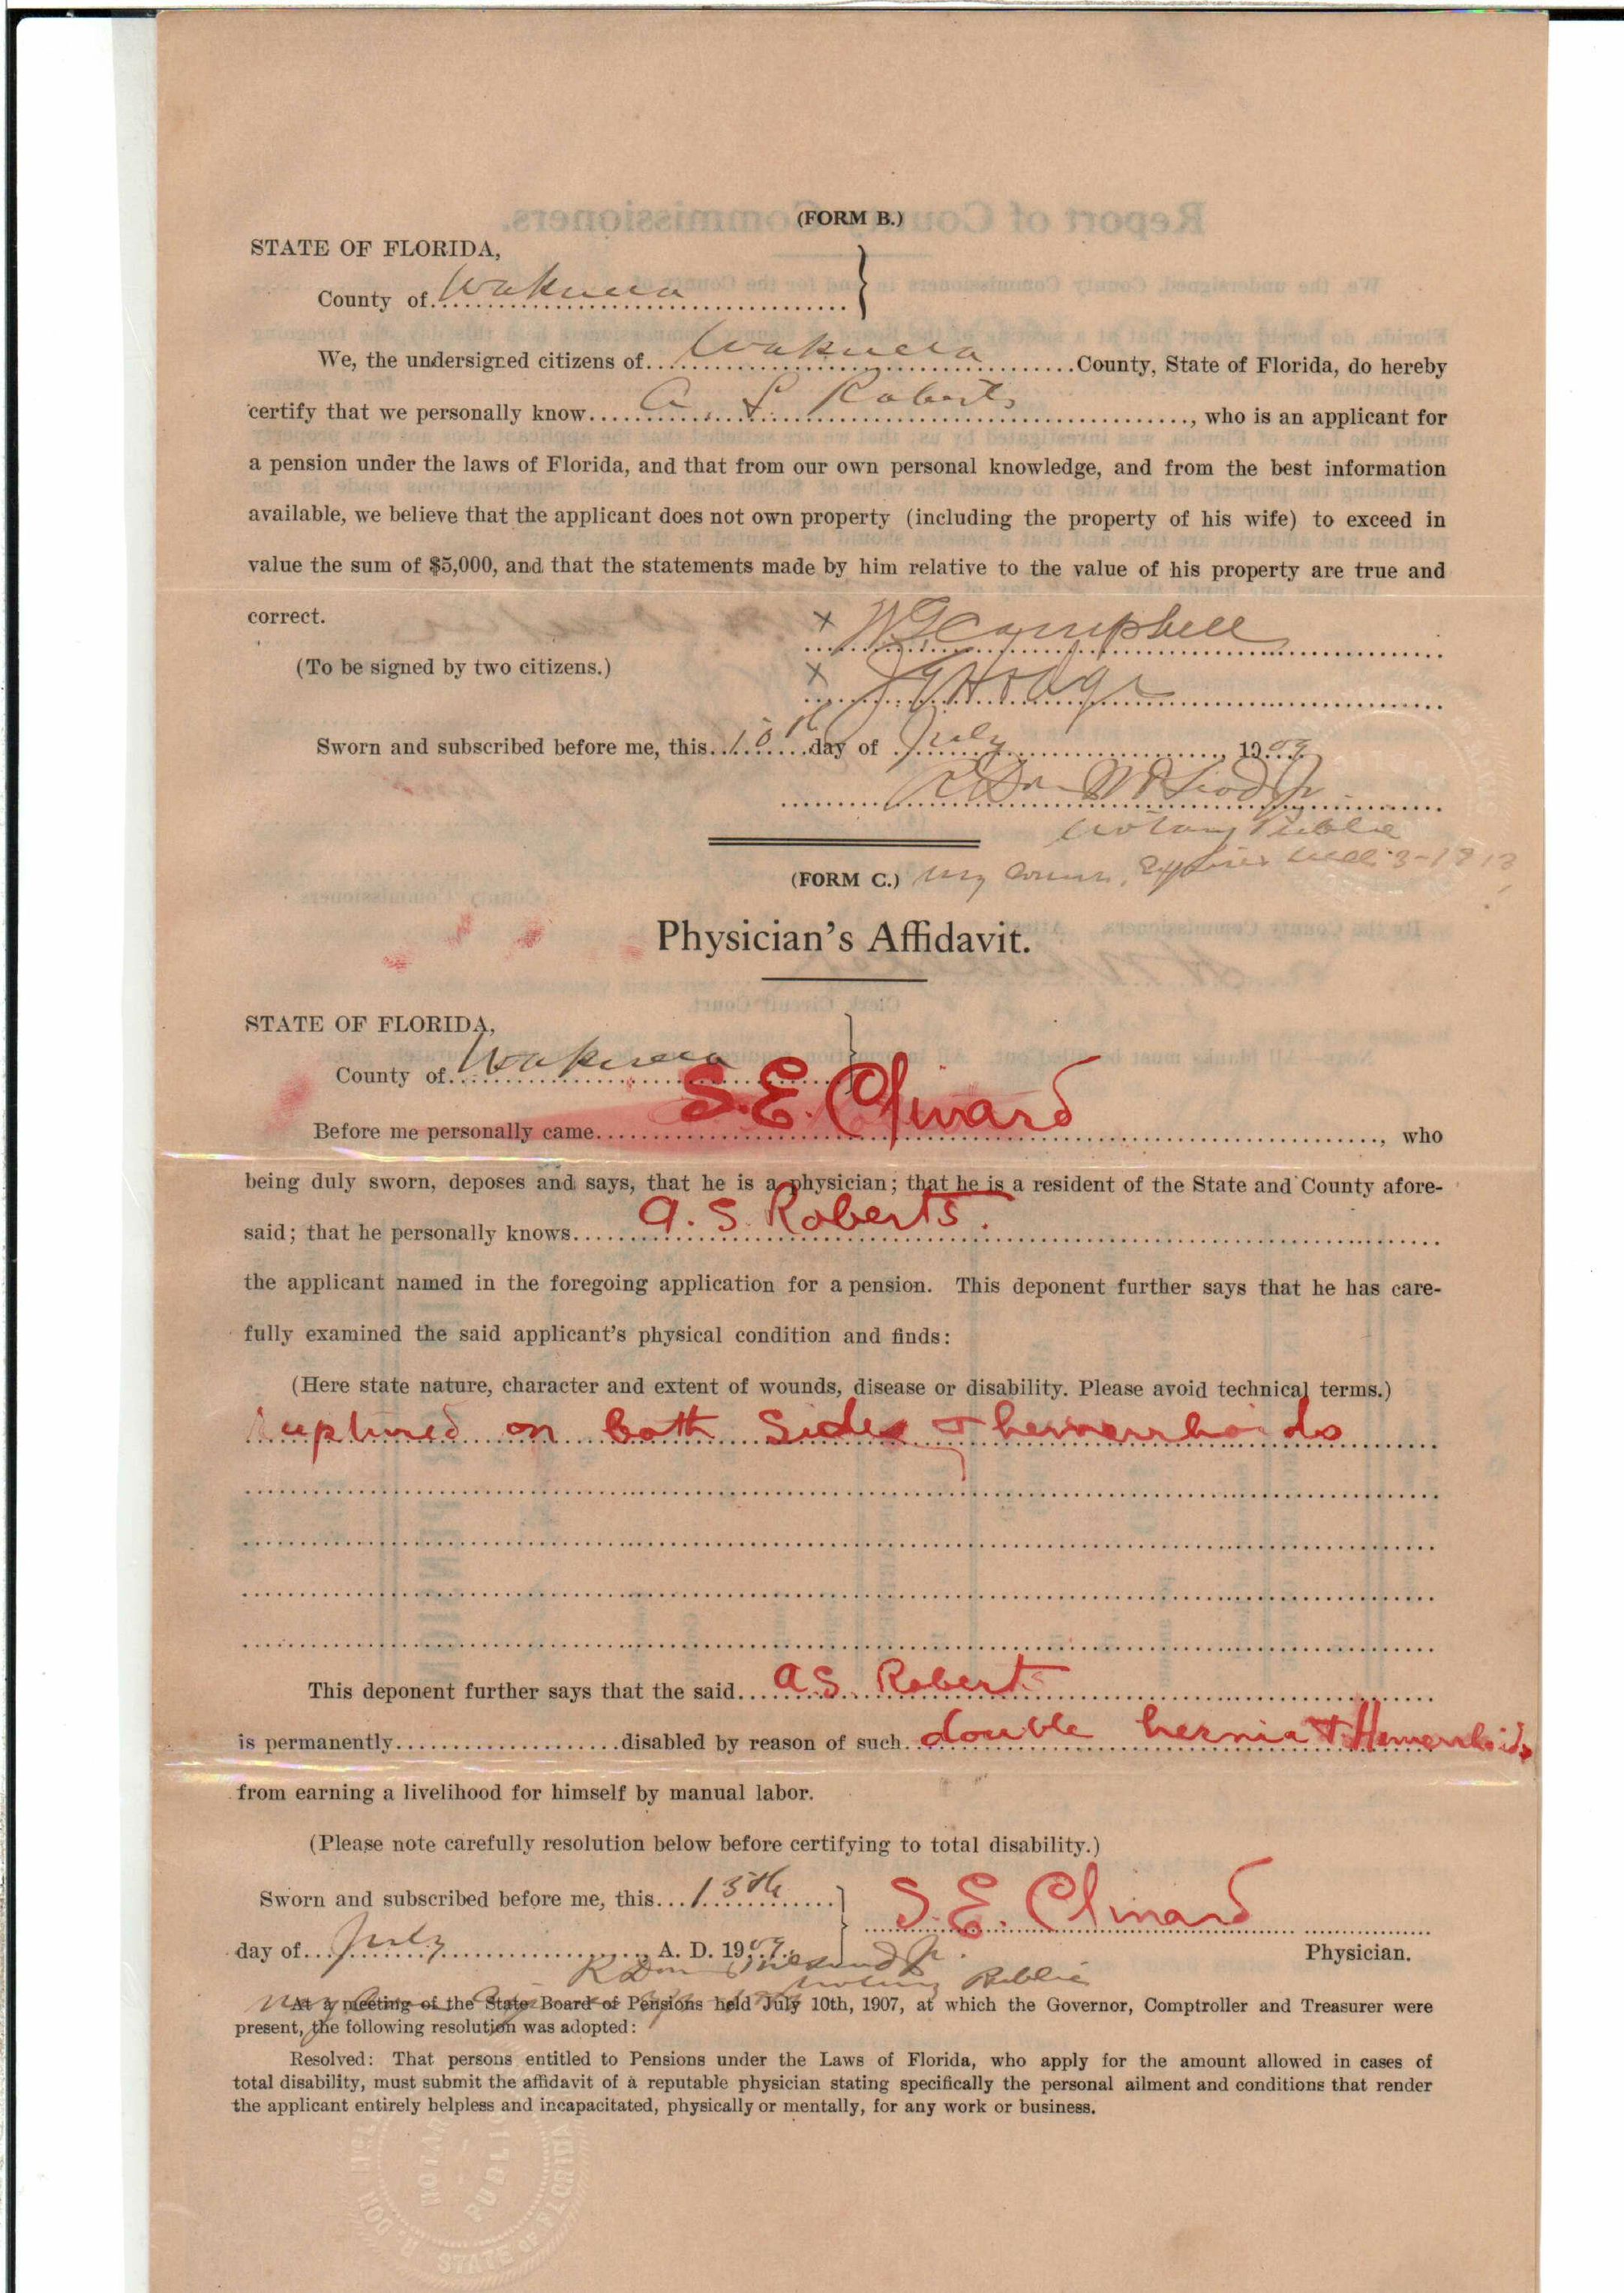 (FORM B.)
STATE OF FLORIDA,
County of Wakulla
We, the undersigned citizens of Wakulla County, State of Florida, do hereby
certify that we personally know A. S. Roberts, who is an applicant for
a pension under the laws of Florida, and that from our own personal knowledge, and from the best information
available, we believe that the applicant does not own property (including the property of his wife) to exceed in
value the sum of $5,000, and that the statements made by him relative to the value of his property are true and
correct.
x W Campbell
(To be signed by two citizens.)
x Hodge
Sworn and subscribed before me, this day of July, 1909
R Don McLeod Jr
Notary Public
(FORM C.) My Comm. Expires 3-1913
Physician's Affidavit.
STATE OF FLORIDA,
County of Wakulla
Before me personally came S.E. Clinard, who
being duly sworn, deposes and says, that he is a physician; that he is a resident of the State and County afore-
said; that he personally knows A. S. Roberts.
the applicant named in the foregoing application for a pension. This deponent further says that he has care-
fully examined the said applicant's physical condition and finds:
(Here state nature, character and extent of wounds, disease or disability. Please avoid technical terms.)
ruptured on both Sides & hemorrhoids
This deponent further says that the said A S Roberts
is permanently disabled by reason of such double hernia & Hemorrhoids
from earning a livelihood for himself by manual labor.
(Please note carefully resolution below before certifying to total disability.)
Sworn and subscribed before me, this 13th
S. E. Clinard
day of July A. D. 1909.
Physician.
R Don McLeod Jr.
Notary Public
At a meeting of the State Board of Pensions held July 10th, 1907, at which the Governor, Comptroller and Treasurer were
present, the following resolution was adopted:
Resolved: That persons entitled to Pensions under the Laws of Florida, who apply for the amount allowed in cases of
total disability, must submit the affidavit of a reputable physician stating specifically the personal ailment and conditions that render
the applicant entirely helpless and incapacitated, physically or mentally, for any work or business.
NOTARY PUBLIC
STATE OF FLORIDA